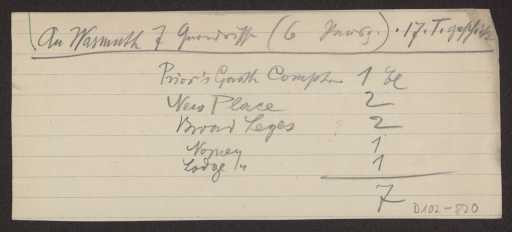 An Wasmuth 7 Grundrisse (6 Hausgr.) . 17. T. geschickt
Prior's Garth Compton 1 Bl
New Place 2
Broad Leyes 2
Norney 1
Lodge 1
7
D102-820